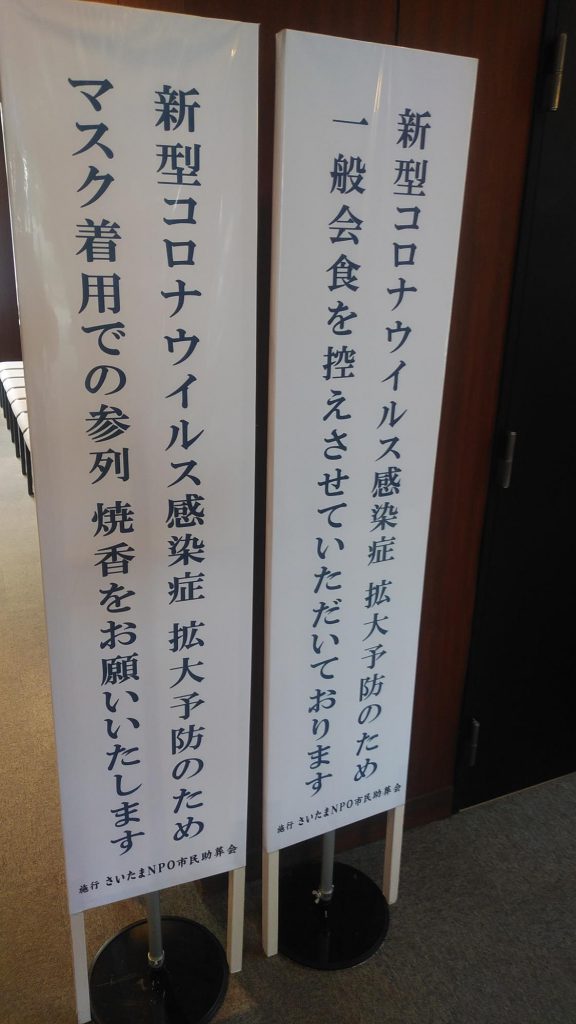 新型コロナウイルス感染症 拡大予防のため
マスク着用での参列 焼香をお願いいたします
施行 さいたまNPO市民助葬会
新型コロナウイルス感染症 拡大予防のため
一般会食を控えさせていただいております
施行 さいたまNPO市民助葬会